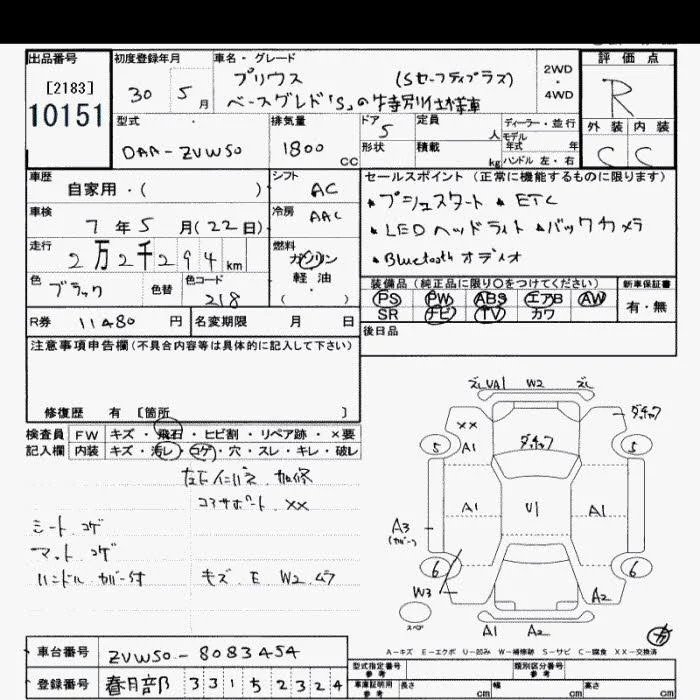 出品番号
[2183]
10151
初度登録年月
30 5月
車名・グレード
プリウス (Sセーフティプラス)
ベースグレード「S」の特別仕様車
2WD
・
4WD
評価点
R
外装 内装
C C
型式
DAA-ZVW50
排気量
1800 CC
ドア 5
形状
定員 人
積載 kg
ディーラー・並行
モデル
年式 年
ハンドル 左・右
車歴
自家用・( )
シフト AC
車検
7年5月(22日)
冷房 AAC
走行
2万2千294km
燃料
ガソリン
軽・油
( ・ )
色
ブラック
色替
色コード
218
セールスポイント (正常に機能するものに限ります)
★プッシュスタート ★ETC
★LEDヘッドライト ★バックカメラ
★Bluetoothオーディオ
装備品 (純正品に限り○をつけてください)
PS PW ABS エアB AW
SR ナビ TV カワ
新車保証書
有・無
後日品
R券 11480円
名変期限 月 日
注意事項申告欄 (不具合内容等は具体的に記入して下さい)
修復歴 有 [箇所 ]
検査員
記入欄
FW キズ・飛石・ヒビ割・リペア跡・×要
内装 キズ・汚レ・コゲ・穴・スレ・キレ・破レ
コアサポート ××
シート コゲ
マット コゲ
ハンドル カバー付
キズ E W2 ムラ
ズレ UA1 W2 ズレ
ダッチャク
××
A1
ダッチャク
5 5
A1 U1 A1
A3
(カバー)
6 6
W3 A2
スペア
A1 A2
A-キズ E-エクボ U-凹み W-補修跡 S-サビ C-腐食 XX-交換済
車台番号 ZVW50-8083454
登録番号 春日部 331 5 2324
型式指定番号
参考
類別区分番号
参考
車庫証明用
参考
長さ cm 幅 cm 高さ cm